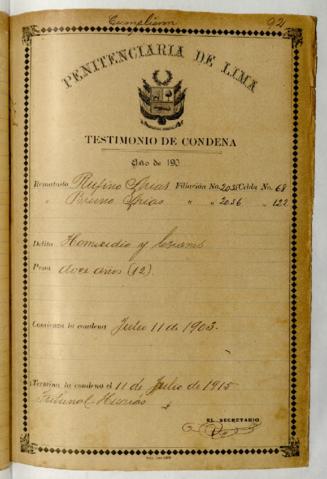 Cumplieron
92
PENITENCIARIA DE LIMA
TESTIMONIO DE CONDENA
Año de 190
Rematado Rufino Arias Filiación No. 2035 Celda No. 68
" Bruno Arias " " 2036 " 122
Delito Homicidio y lesiones
Pena doce años (12)
Comienza la condena Julio 11 de 1903.
Termina la condena el 11 de Julio de 1915
Tribunal
EL SECRETARIO